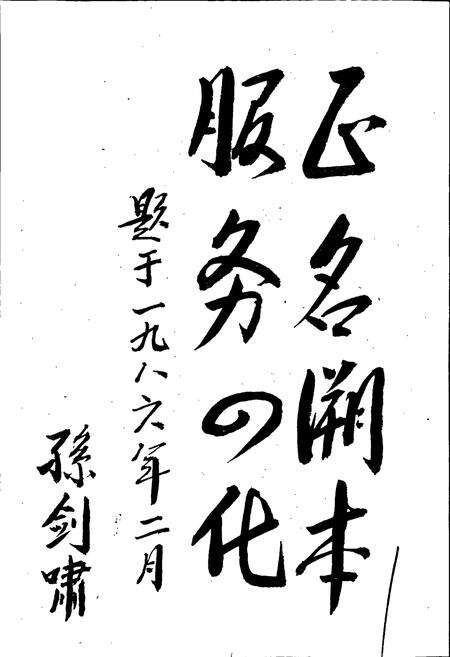 正名溯本
服务四化
题于一九八六年二月
孫剑啸